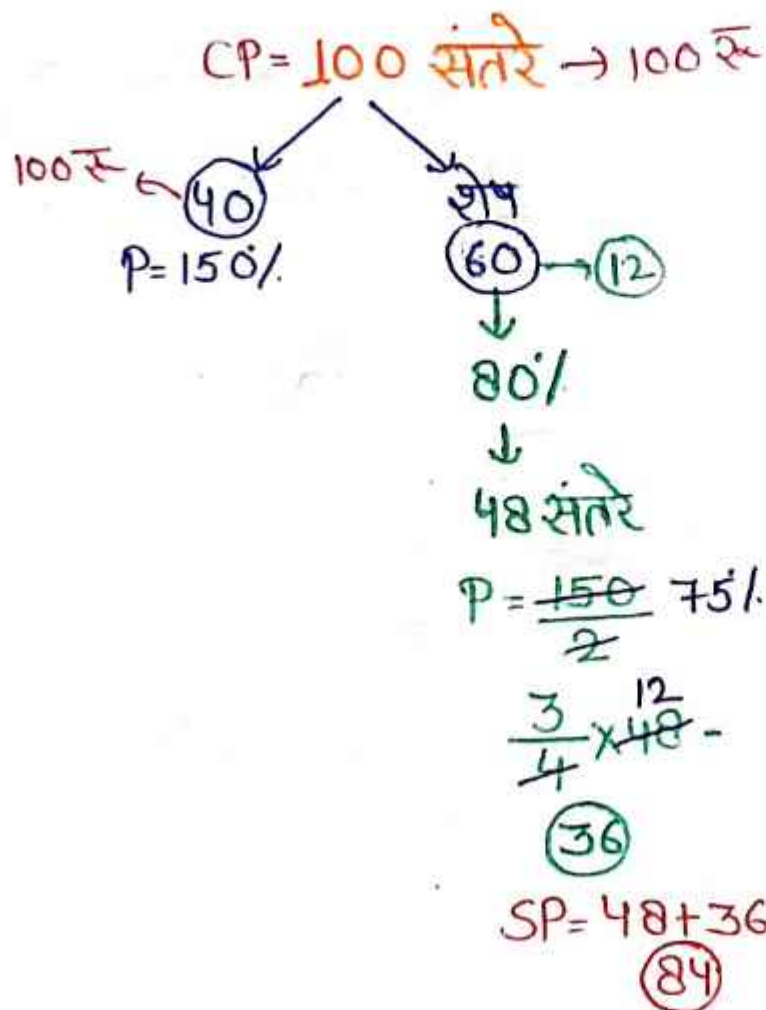 CP = 100 संतरे → 100 रू
100 रू ← 40
P = 150%
शेष
60 → 12
↓
80%
↓
48 संतरे
P = 150/2 75%
3/4 × 48 - 12
36
SP = 48 + 36
84